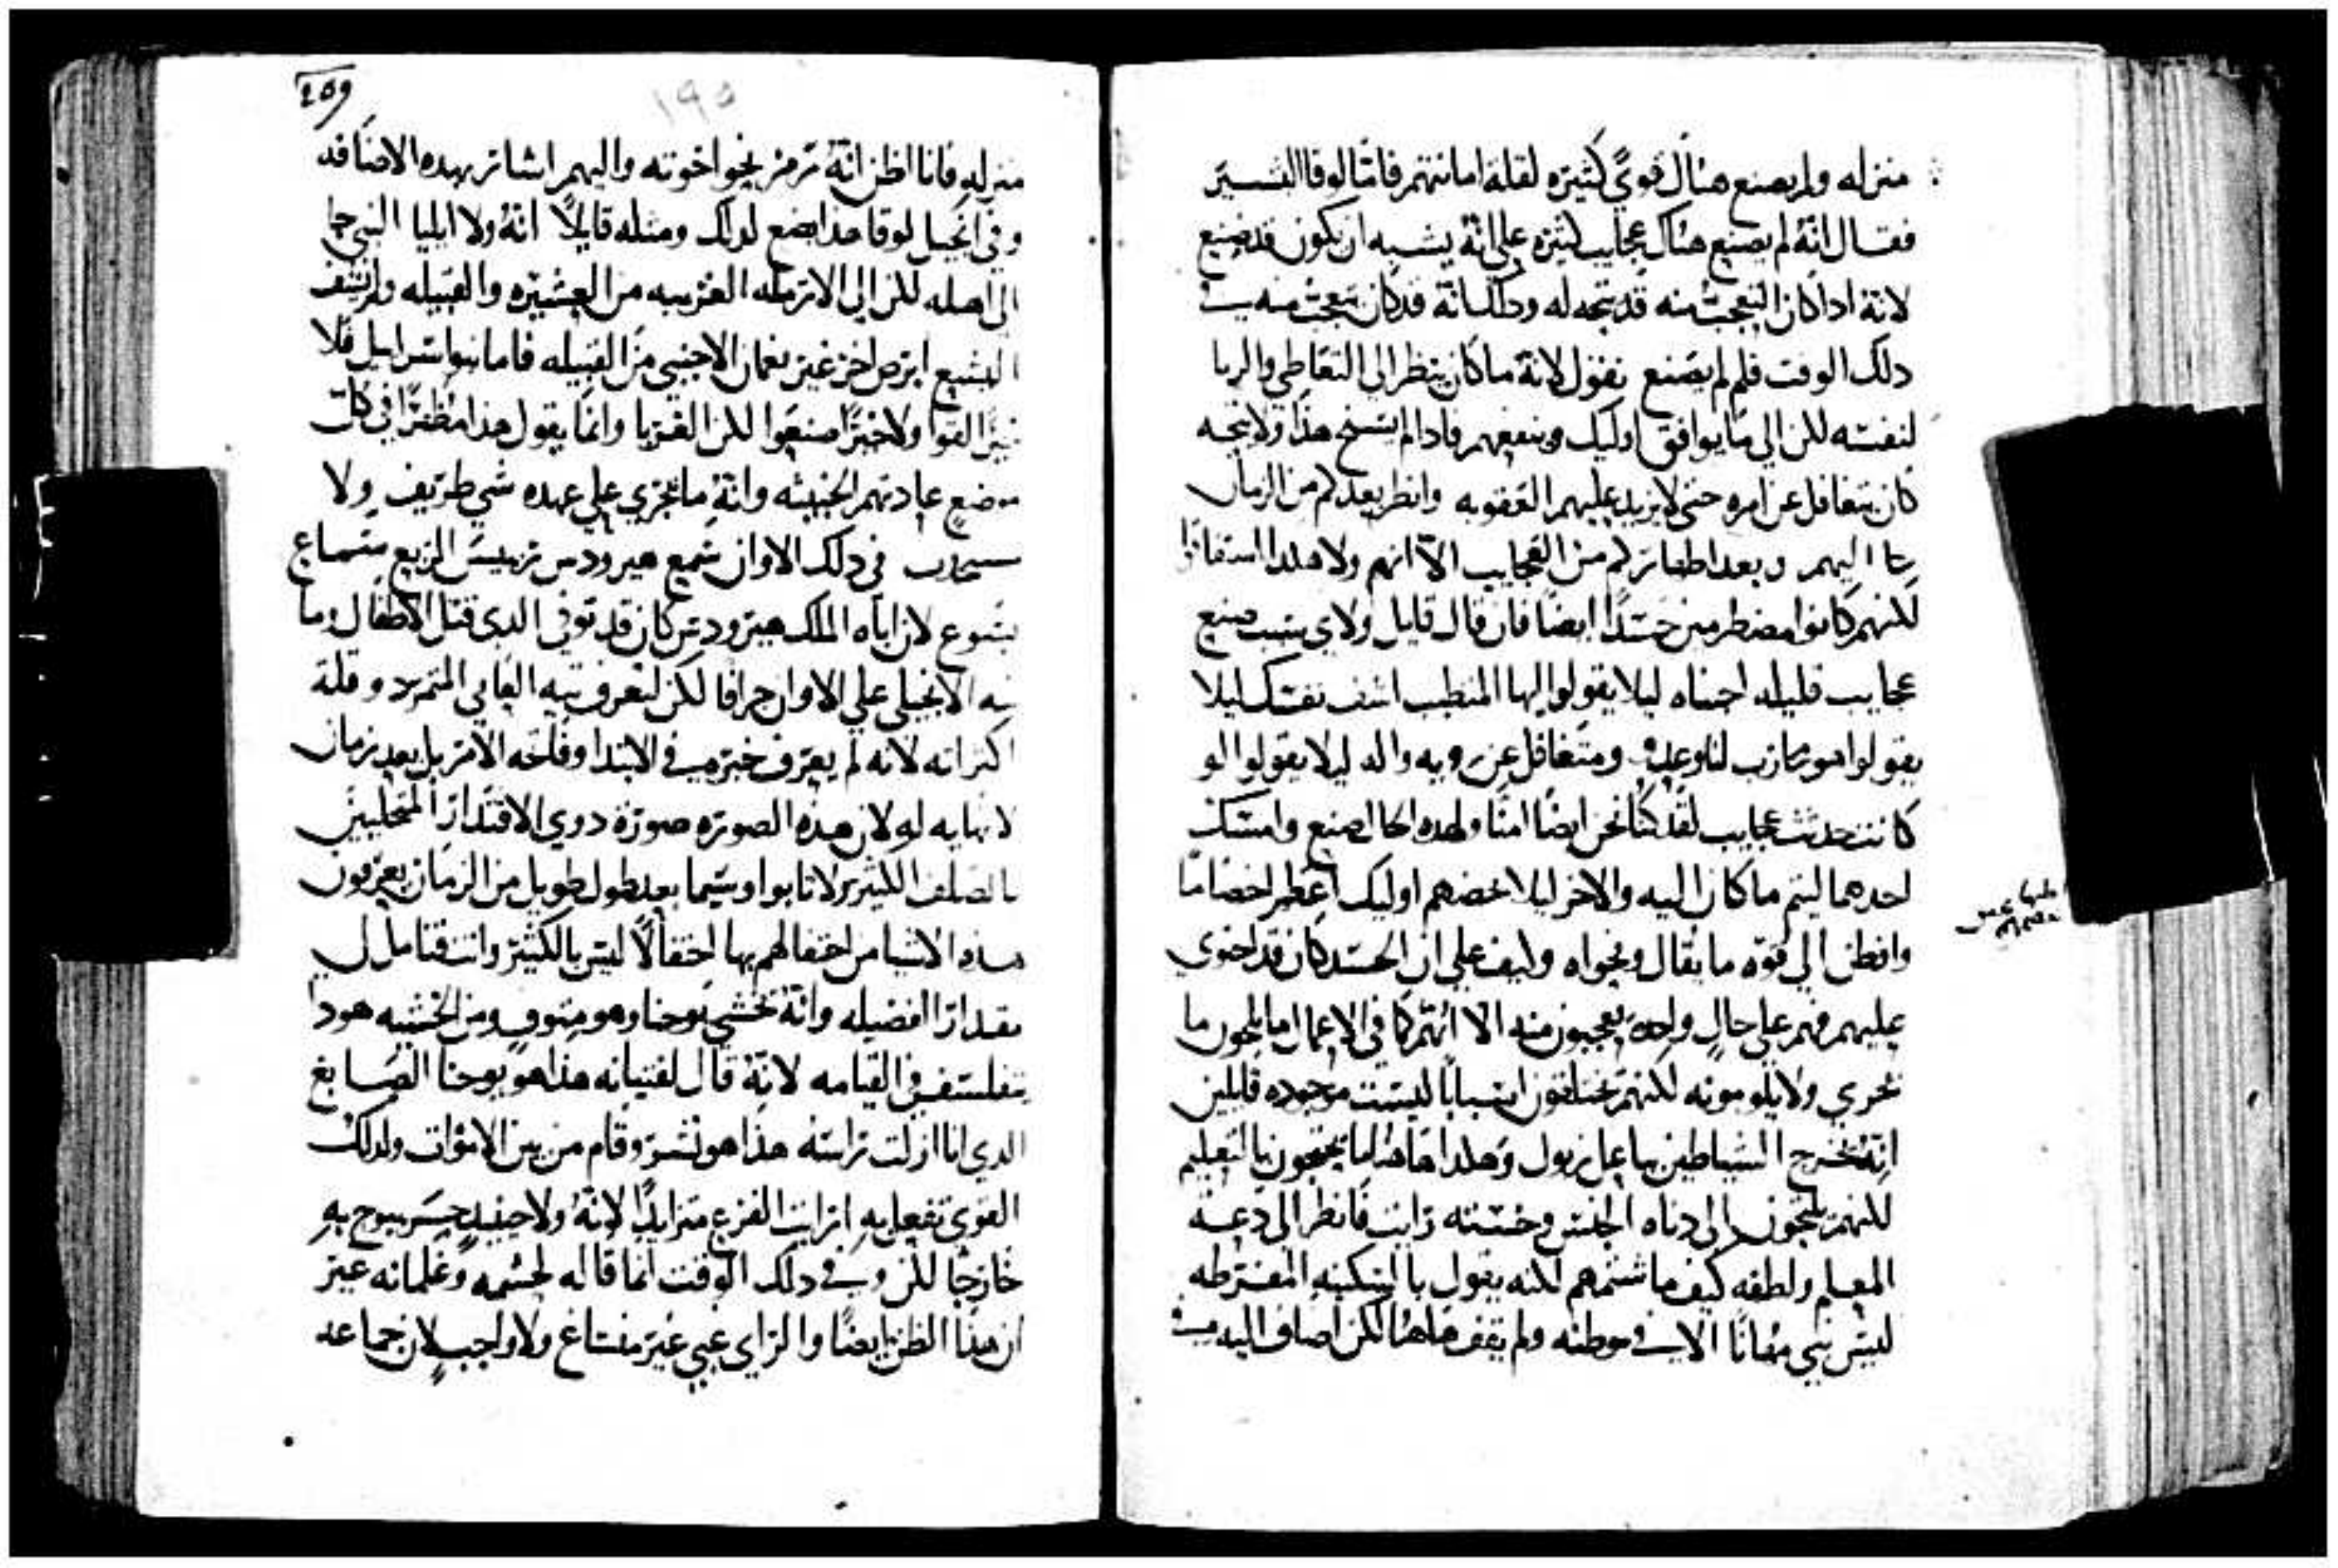 منزله ولم يصنع هناك قوي كثيره لقلة امانتهم فاما لوقا البشير
فقال انه لم يصنع هناك عجايب كثيره علي انه يشبه ان يكون قد صنع
لانه ادا كان التعجب منه قد يتجه له ودلك انه قد كان يتعجب منه في
دلك الوقت فلم لم يصنع نقول لانه ما كان ينظر الي التعاطي والريا
لنفسه لكن الي ما يوافق اوليك وينفعهم فادا لم يسنح هذا ولا يتجه
كان يتغافل عن امره حتي لا يزيد عليهم العقوبه وانظر بعد كم من الزمان
جا اليهم وبعد اظهار كم من العجايب الا انهم ولا هكدا استفادوا
لكنهم كانوا مضطرمين حسدا ايضا فان قال قايل ولاي سبب صنع
عجايب قليله اجبناه ليلا يقولوا ايها المتطبب اشف نفسك ليلا
يقولوا هو محارب لنا وعدو ومتغافل عن دويه والد ليلا يقولوا لو
كانت حدثت عجايب لقد كنا نحن ايضا امنا ولهده الحال صنع وامسك
احدهما ليتم ما كان اليه والاخر ليلا يخصهم اوليك اعظم اخصاما
وافطن الي قوة ما يقال وفحواه وكيف علي ان الحسد كان قد احتوي
عليهم فهم علي حال واحده يعجبون منه الا انهم كما في الاعمال ما يلمون ما
تجري ولا يلومونه لكنهم يختلقون اسبابا ليست موجوده قايلين
انه يخرج الشياطين بباعل زبول وهكدا هاهنا ما يحتجون بالتعليم
لكنهم يلتجون الي دناه الجنس وخسته رايت فانظر الي دعة
المعلم ولطفه كيف ما شتمهم لكنه يقول بالسكينه المفرطه
ليس نبي مهانا الا في موطنه ولم يقف هاهنا لكن اضاف اليه في
209
١٩٥
منزله فانا اظن انه يرمز نحو اخوته واليهم اشار بهده الاضافه
وفي انجيل لوقا هدا يضع لدلك ومثله قايلا انه ولا ايليا النبي جا
الي اهله لكن الي الارمله الغريبه من العشيره والقبيله ولم يشف
اليشع ابرص اخر غير نعمان الاجنبي من القبيله فاما بنوا اسراييل فلا
خيرا لقوا ولا خيرا صنعوا لكن الغربا وانما يقول هدا مظهرا في كل
موضع عادتهم الخبيثه وانه ما يجري علي عهده شي طريف ولا
مستحدث في دلك الاوان سمع هيرودس رييس الربع سماع
يسوع لان اباه الملك هيرودس كان قد توفي الدي قتل الاطفال وما
نبه الانجيلي علي الاوان جزافا لكن لتعرف تيه العاتي المتمرد وقلة
اكتراته لانه لم يعرف خبره في الابتدا وفاتحه الامر بل بعد زمان
لا نهايه له لان هده الصوره صورة دوي الاقتدار المتحليين
بالصلف الكثير ولانا بوا وسيما بعد طول طويل من الزمان يعرفون
هده الاشيا من احتفالهم بها احتفالا ليس بالكثير وانت فتامل لي
مقدار الفضيله وانه يخشي يوحنا وهو متوف ومن الخشيه هودا
يتفلسف في القيامه لانه قال لفتيانه هدا هو يوحنا الصابغ
الدي انا ازلت راسه هدا هو نشر وقام من بين الاموات ولدلك
القوي تفعل به ارايت الفزع متزايدا لانه ولا حينيد جسر يبوح به
خارجا لكن وفي دلك الوقت انما قاله لحشمه وغلمانه غير
ان هدا الظن ايضا والراي غبي غير منساغ ولا واجب لان جماعه